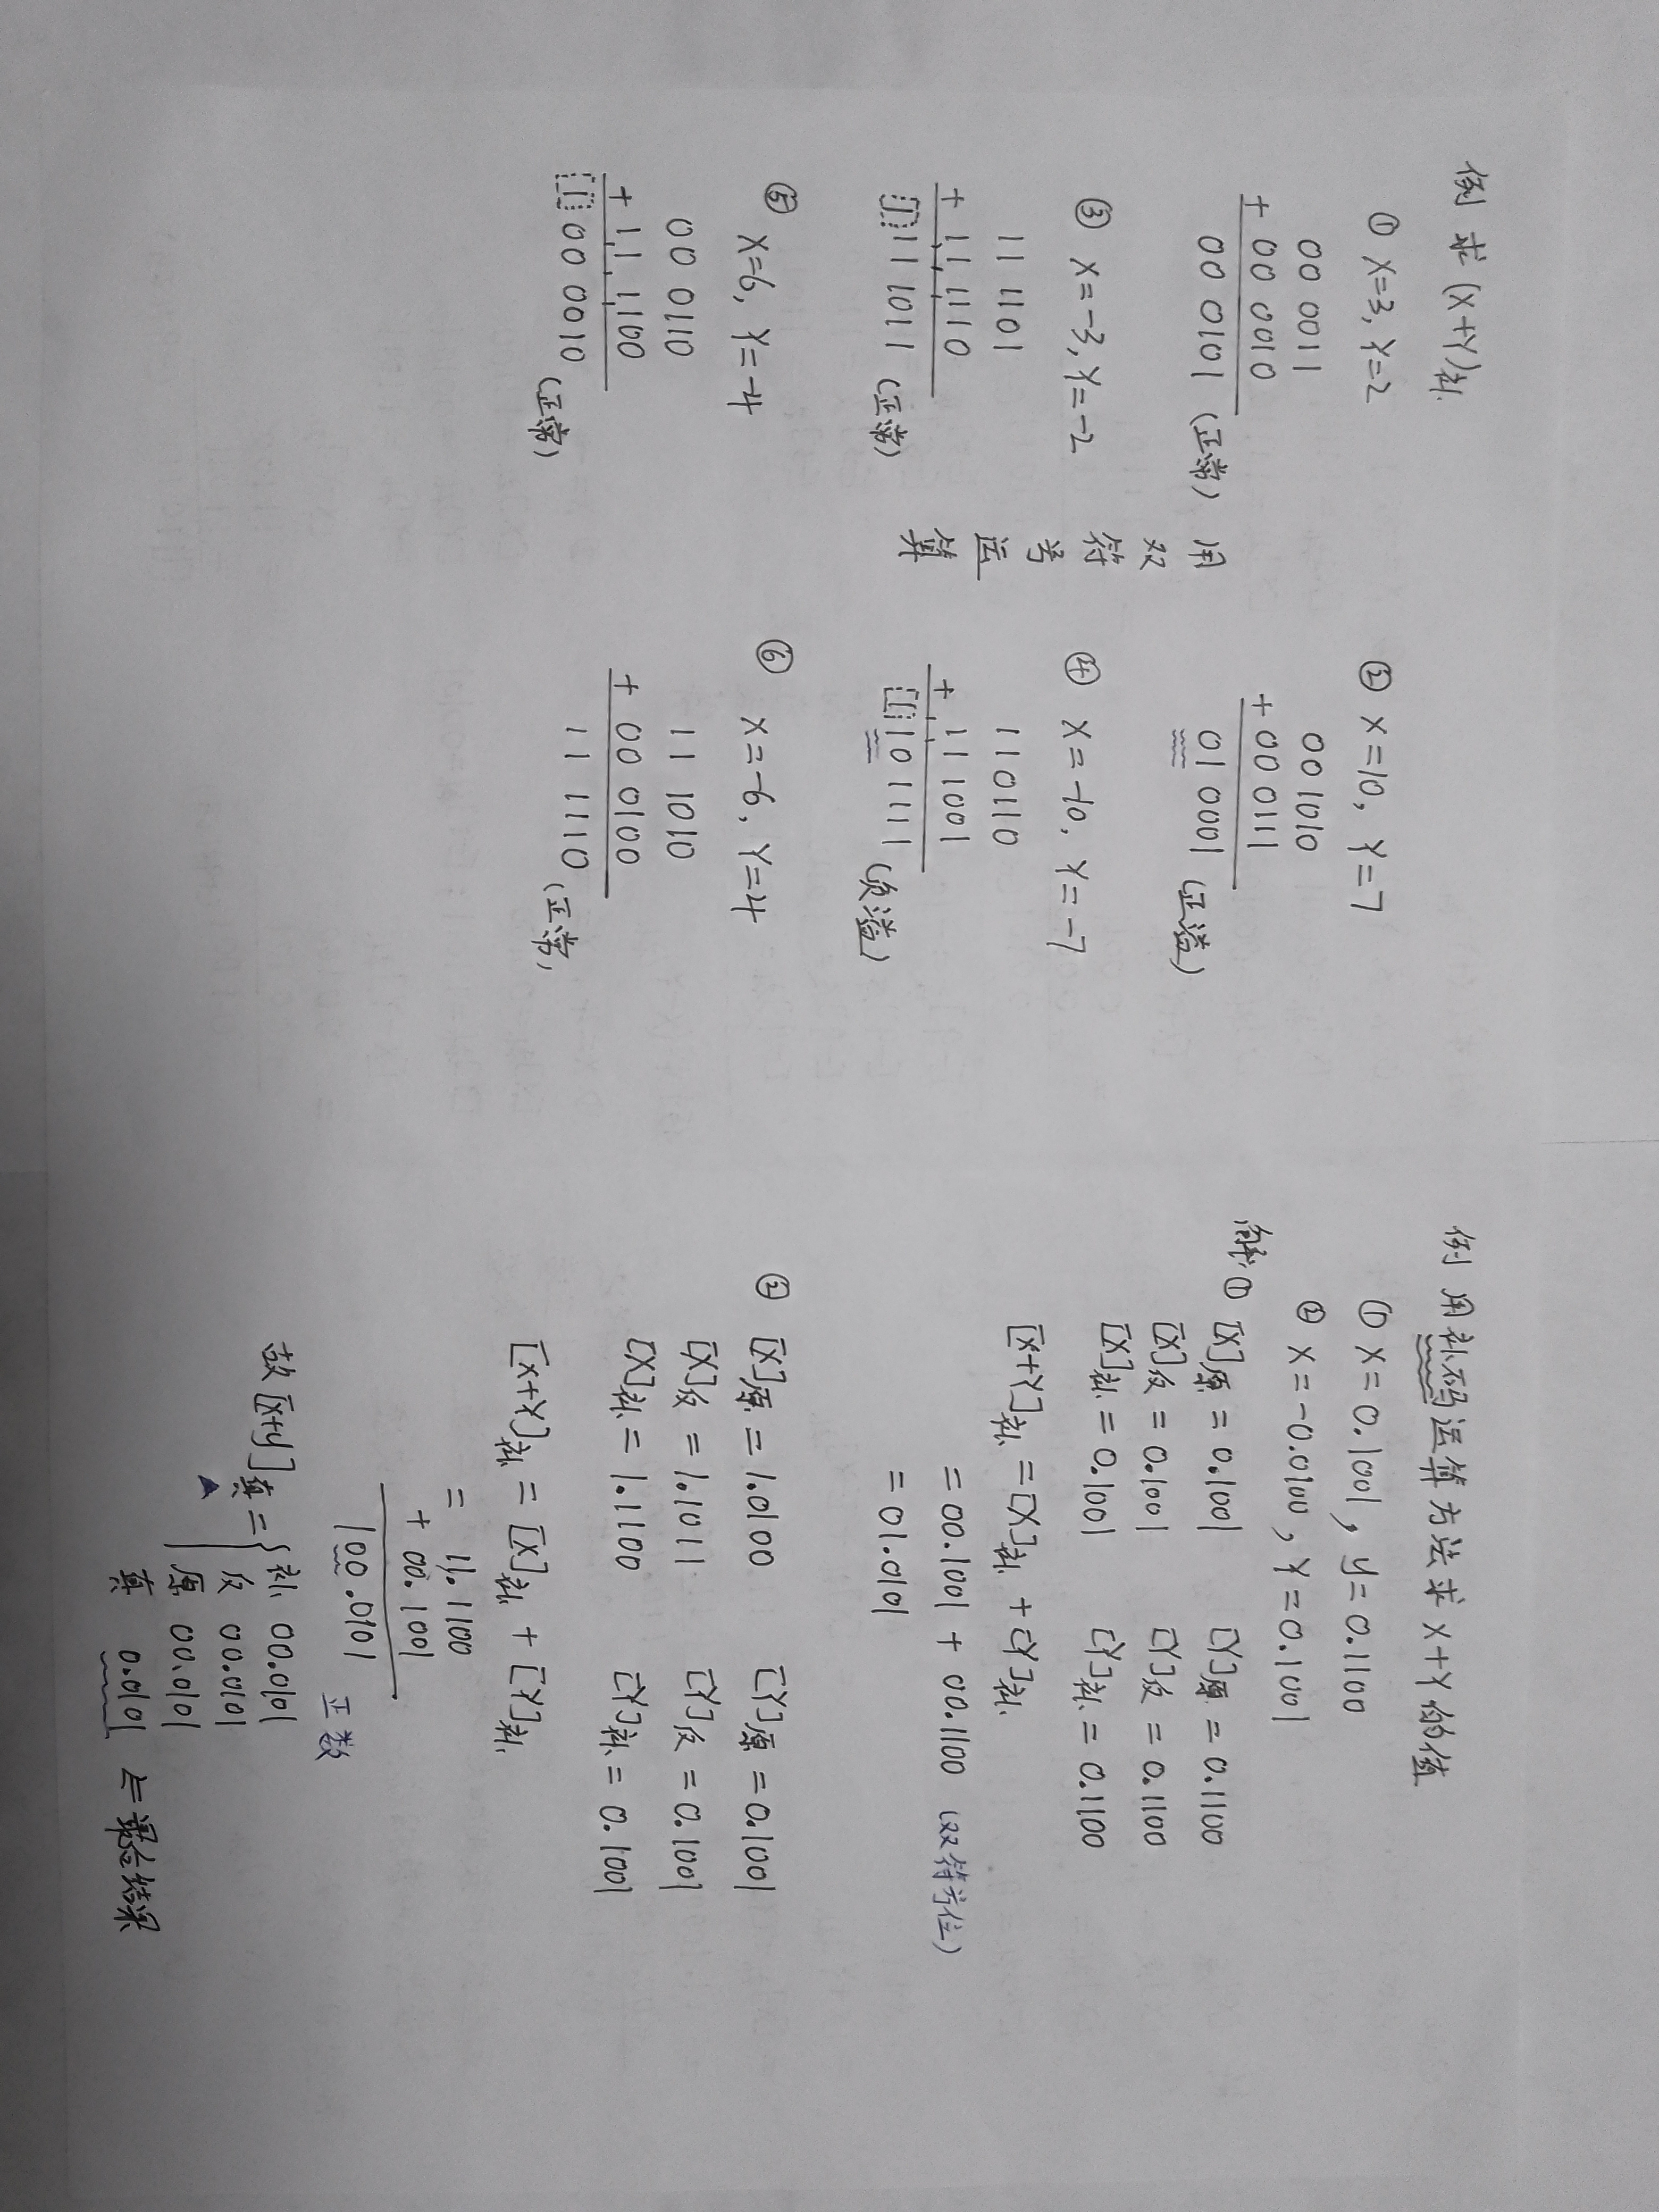 例 求 (X+Y)补
① X=3, Y=2
00 0011
+ 00 0010
00 0101 (正常)
② X=10, Y=7
00 1010
+ 00 0111
01 0001 (正溢)
用双符号运算
③ X=-3, Y=-2
11 1101
+ 11 1110
1 11 1011 (正常)
④ X=-10, Y=-7
11 0110
+ 11 1001
1 10 1111 (负溢)
⑤ X=6, Y=-4
00 0110
+ 11 1100
1 00 0010 (正常)
⑥ X=-6, Y=4
11 1010
+ 00 0100
11 1110 (正常)
例 用补码运算方法求 X+Y 的值
① X=0.1001, y=0.1100
② X=-0.0100, Y=0.1001
解: ① [X]原=0.1001 [Y]原=0.1100
[X]反=0.1001 [Y]反=0.1100
[X]补=0.1001 [Y]补=0.1100
[X+Y]补=[X]补+[Y]补
=00.1001+00.1100 (双符号位)
=01.0101
② [X]原=1.0100 [Y]原=0.1001
[X]反=1.1011 [Y]反=0.1001
[X]补=1.1100 [Y]补=0.1001
[X+Y]补=[X]补+[Y]补
= 11.1100
+ 00.1001
100.0101 正数
故[x+y]真= { 补 00.0101
反 00.0101
原 00.0101
真 0.0101 ⇐最后结果